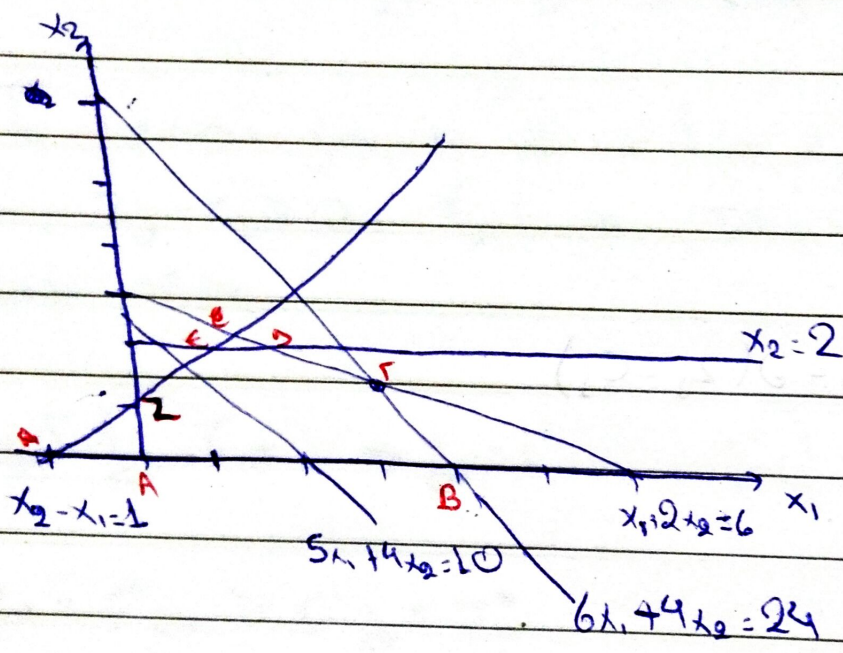 x2
x2 = 2
A
B
x1
x2 - x1 = 1
x1 + 2x2 = 6
5x1 + 4x2 = 10
6x1 + 4x2 = 24